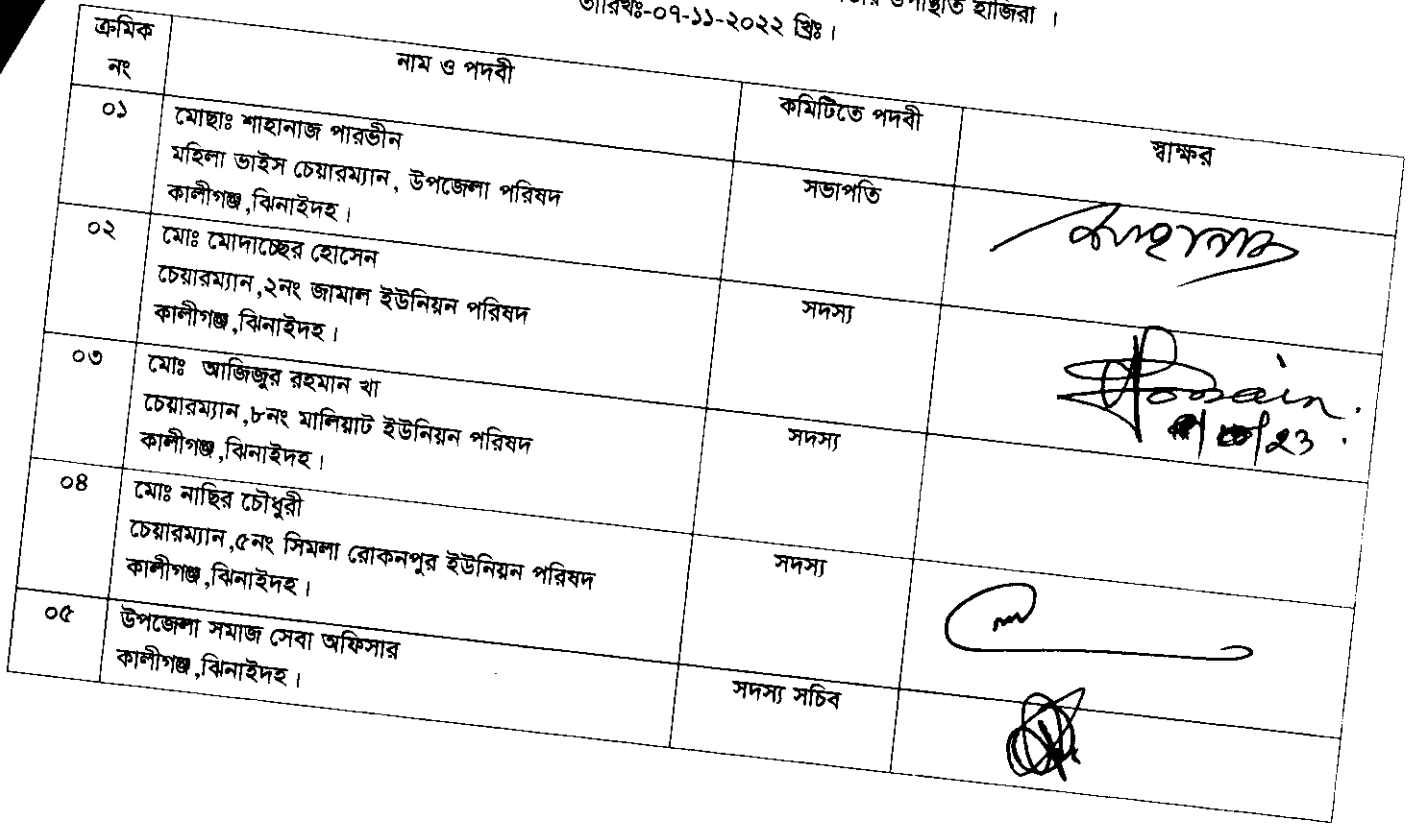 উপস্থিত হাজিরা ।
তারিখঃ-০৭-১১-২০২২ খ্রিঃ।
ক্রমিক নং
নাম ও পদবী
কমিটিতে পদবী
স্বাক্ষর
০১
মোছাঃ শাহানাজ পারভীন
মহিলা ভাইস চেয়ারম্যান, উপজেলা পরিষদ
কালীগঞ্জ,ঝিনাইদহ।
সভাপতি
শাহনাজ
০২
মোঃ মোদাচ্ছের হোসেন
চেয়ারম্যান,২নং জামাল ইউনিয়ন পরিষদ
কালীগঞ্জ,ঝিনাইদহ।
সদস্য
Hossain
০৩
মোঃ আজিজুর রহমান খা
চেয়ারম্যান,৮নং মালিয়াট ইউনিয়ন পরিষদ
কালীগঞ্জ,ঝিনাইদহ।
সদস্য
০৪
মোঃ নাছির চৌধুরী
চেয়ারম্যান,৫নং সিমলা রোকনপুর ইউনিয়ন পরিষদ
কালীগঞ্জ,ঝিনাইদহ।
সদস্য
০৫
উপজেলা সমাজ সেবা অফিসার
কালীগঞ্জ,ঝিনাইদহ।
সদস্য সচিব